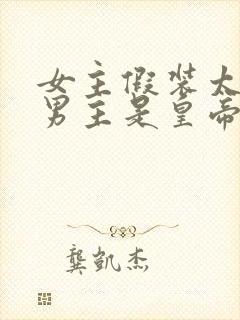 女主假装太
男主是皇帝
龚凯杰